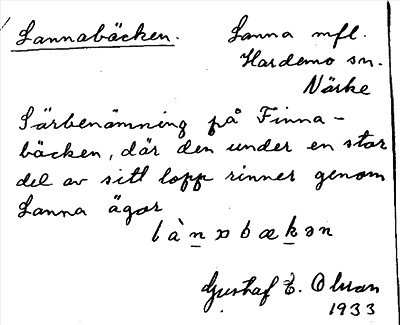 Lannabäcken. Lanna mfl.
Hardemo sn.
Närke
Särbenämning på Finna-
bäcken, där den under en stor
del av sitt lopp rinner genom
Lanna ägor
là n ɒ bæk ə n
Gustaf E. Olsson
1933